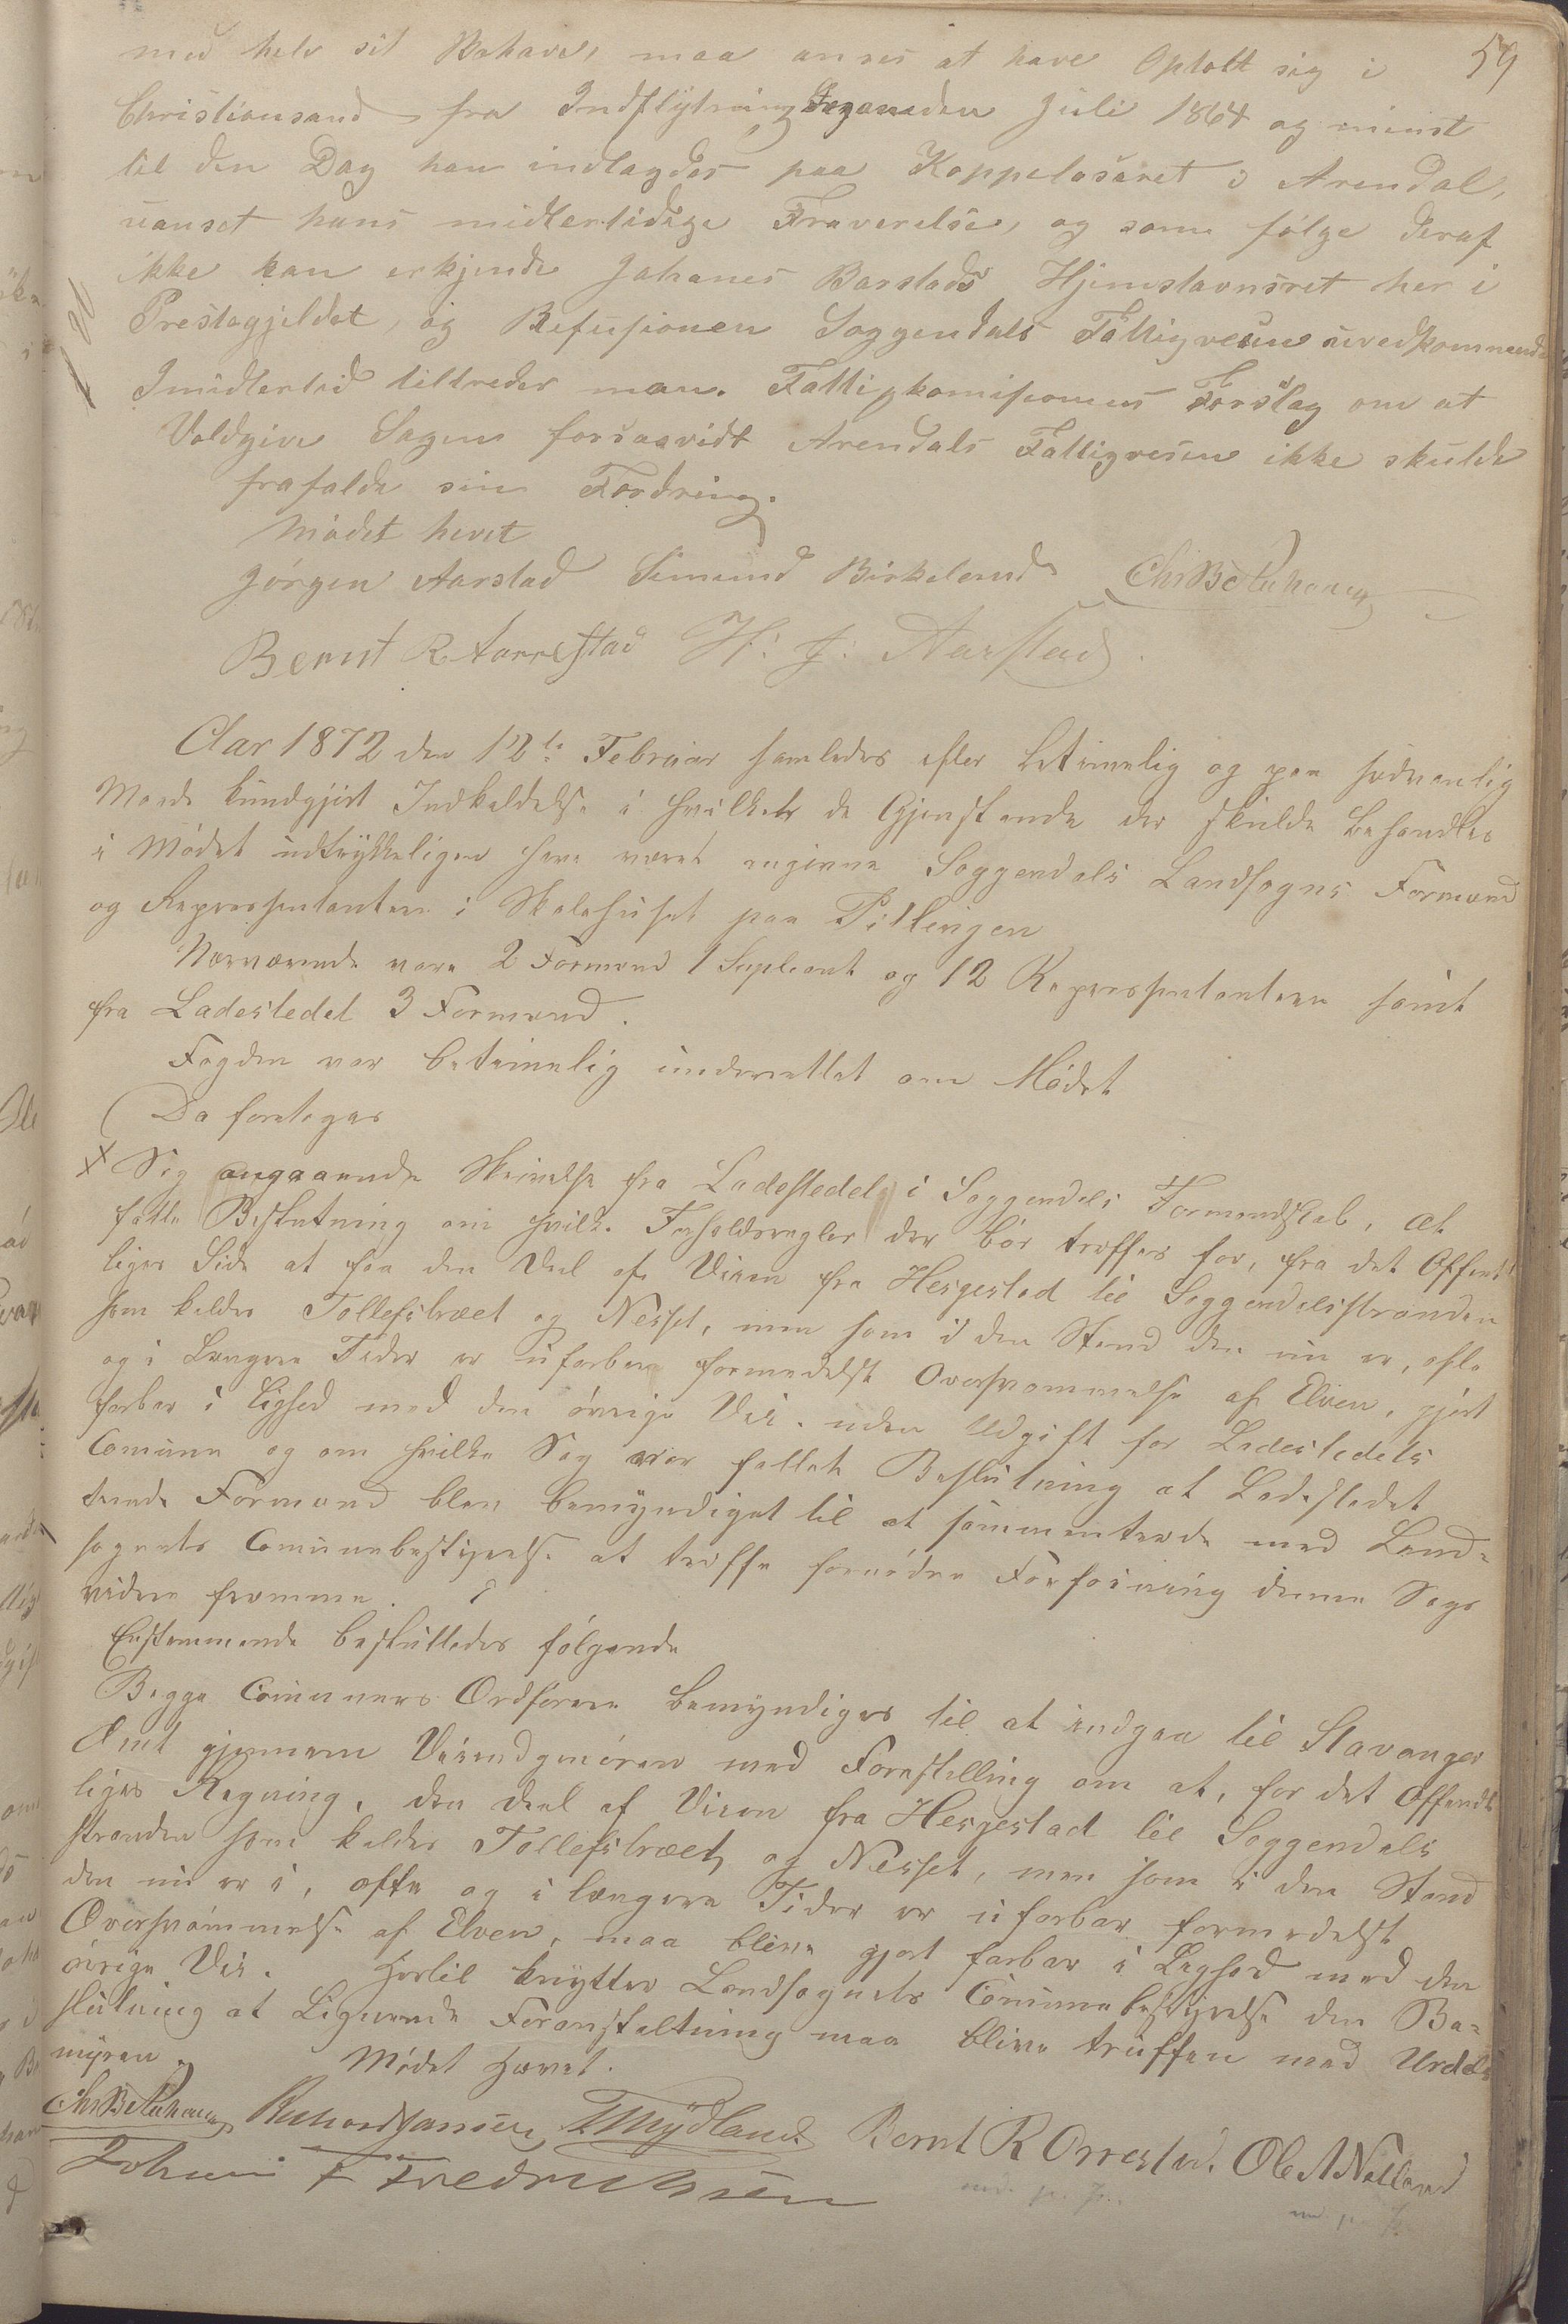 59
med hele sit Bohave, maa anses at have Opholt sig i
Christiansand fra Indflytning Juli 1864 og minst
til den Dag han indlagdes paa Koppelasaret i Arendal,
uanset hans midlertidige Fraverelse, og som følge deraf
ikke kan erkjende Johanes Barstads Hjemstavnsret her i
Prestegjeldet, og Refusionen Soggendals Fattigvesen uvedkommende
Imidlertid tiltreder man Fattigkomisionens Forslag om at
Voldgive Sagen forsaavidt Arendals Fattigvesen ikke skulde
frafalde sin Fordring.
Mødet hevet
Jørgen Aarstad Simund Birkeland
Bernt R Aarrestad H: J: Aarstad.
Aar 1872 den 12te Februar samledes efter betimelig og paa sedvanlig
Maade kundgjort Indkaldelse i hvilket de Gjenstande der skulde behandles
i Mødet udtrykkeligen have været angivne Soggendals Landsogns Formænd
og Representanter i Skolehuset paa
Nærværende vare 2 Formænd 1 Supleant og 12 Representantere samt
fra Ladestedet 3 Formænd.
Fogden var betimelig underrettet om Mødet
Da foretoges
X Sag angaaende Skrivelse fra Ladestedet i Soggendals Formandskab, at
fatte Beslutning om hvilke Forholdsregler der bør treffes for, fra det Offent
liges Side at faa den Deel af Veien fra Hesgestad til Soggendalsstranden
som kaldes Tollefstræet og Nesset, men som i den Stand den nu er, ofte
og i Længere Tider er ufarbar formedelst Oversvømmelse af Elven, gjort
farbar i Lighed med den øvrige Vei. uden Udgift for Ladestedets
Comune og om hvilke Sag var fattet Beslutning at Ladestedet
Formænd blev bemyndiget til at sammentræde med Land-
sognets Comunebestyrelse at treffe fornøden Forføining denne Sags
videre fremme.
Enstemmende besluttedes følgende
Begge Comuners Ordførere bemyndiges til at indgaa til Stavanger
Amt gjennem Veiindgeniøren med Forestilling om at, for det Offendt
liges Regning, den deel af Veien fra Hesgestad til Soggendals
stranden som kaldes Tollefstræet, og Nesset, men som i den Stand
den nu er i, ofte og i længere Tider er ufarbar formedelst
Oversvømmelse af Elven, maa blive gjort farbar i Lighed med den
øvrige Vei. Hertil knytter Landsognets Comunebestyrelse den Be-
slutning at Lignende Foranstaltning maa blive truffen med Urdals
myren.
Mødet hævet.
Richard Jansen T Mydland Bernt R Orrestad. Ole A Netland
Johan F Fredrichsen